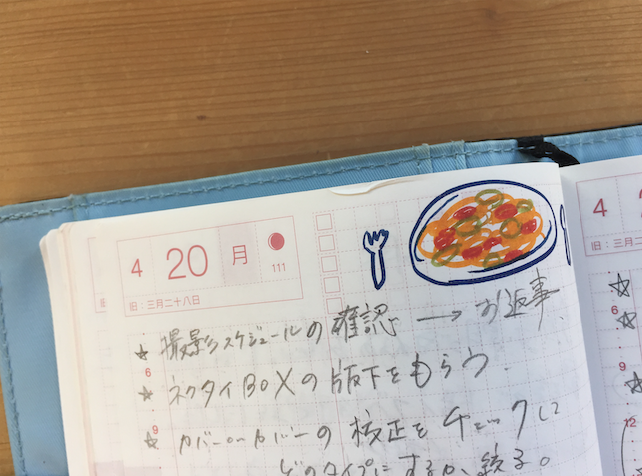 4 20 月
111
旧:三月二十八日
☆ 撮影スケジュールの確認 → お返事
6
☆ ネクタイBOXの版下をもらう.
9
☆ カバーonカバーの校正をチェックして
どのタイプにするか、絞る。
4
旧:三
6
12